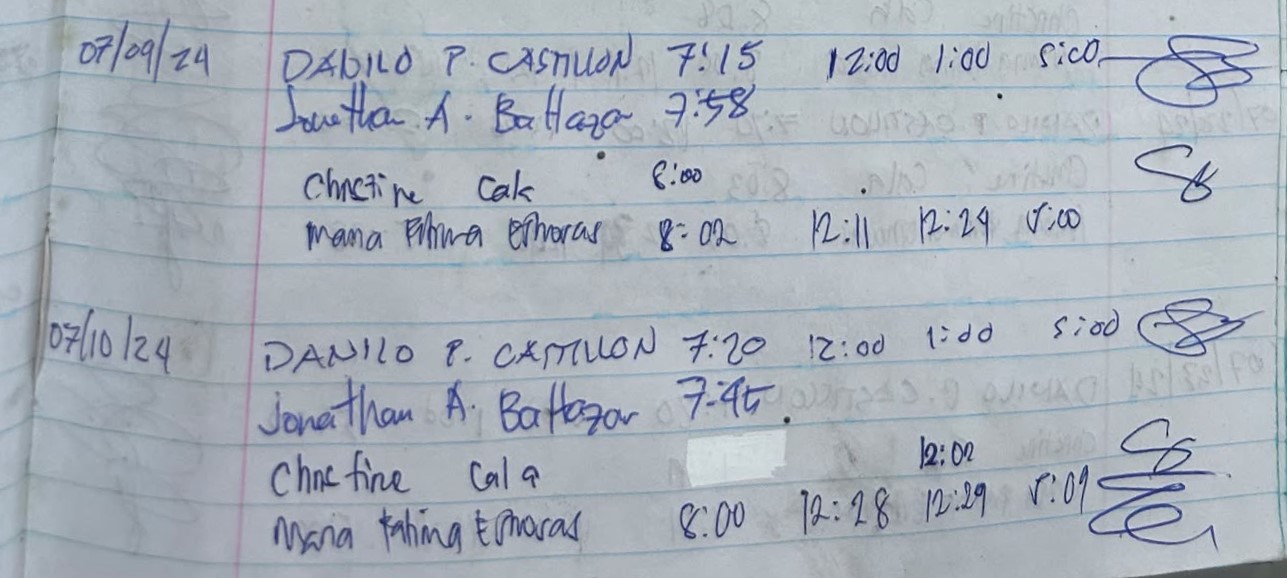 07/09/24 DANILO P. CASTILLON 7:15 12:00 1:00 5:00
Jonathan A. Baltazar 7:58
Christine Cala 8:00
Maria Fatima 8:02 12:11 12:24 5:00
07/10/24 DANILO P. CASTILLON 7:20 12:00 1:00 5:00
Jonathan A. Baltazar 7:45
Christine Cala 12:02
Maria Fatima 8:00 12:28 12:29 5:09